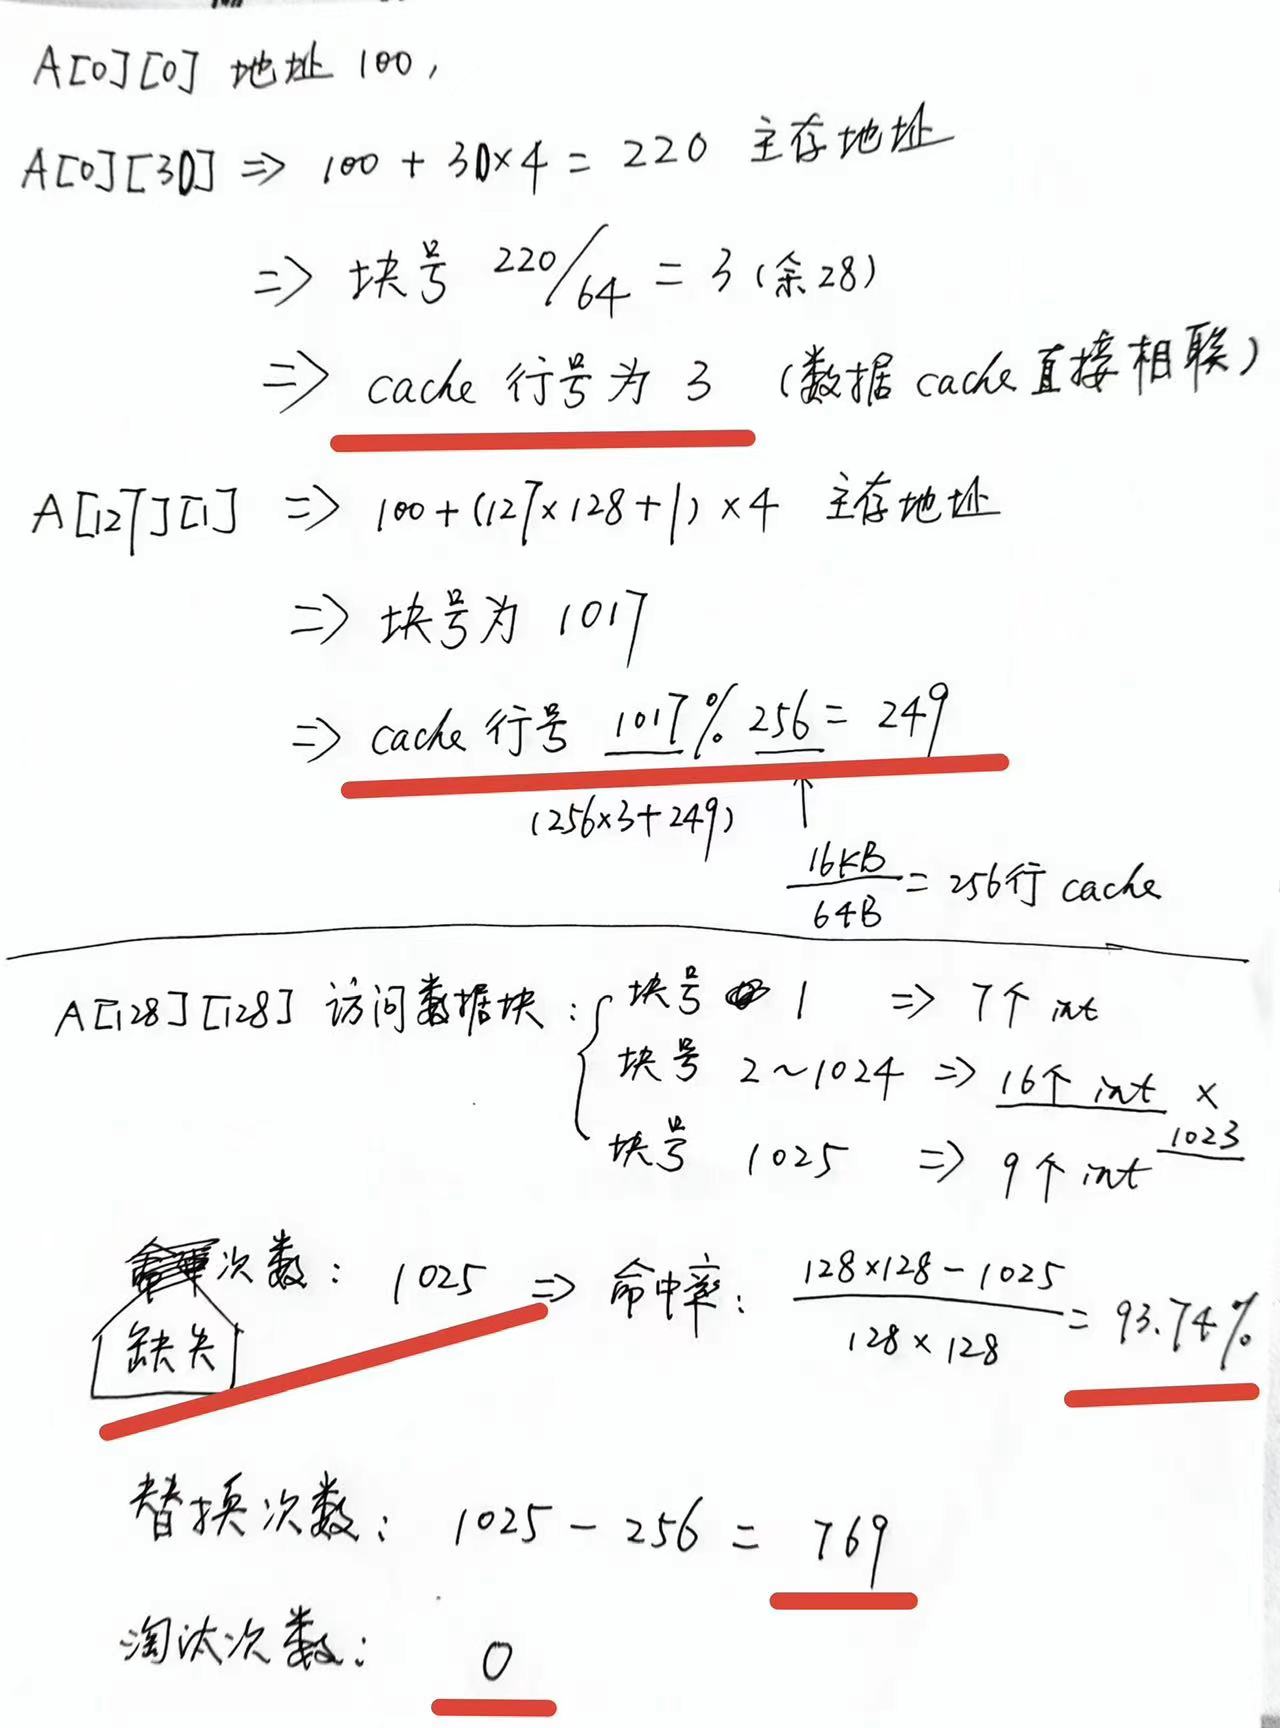 A[0][0] 地址 100,
A[0][30] => 100 + 30×4 = 220 主存地址
=> 块号 220/64 = 3 (余28)
=> cache 行号为 3 (数据 cache 直接相联)
A[127][1] => 100+(127×128+1)×4 主存地址
=> 块号为 1017
=> cache 行号 1017 % 256 = 249
(256×3+249) ↑
16KB/64B = 256行 cache
A[128][128] 访问数据块: { 块号 1 => 7个 int
块号 2~1024 => 16个 int × 1023
块号 1025 => 9个 int
缺失次数: 1025 => 命中率: (128×128-1025)/(128×128) = 93.74%
替换次数: 1025 - 256 = 769
淘汰次数: 0